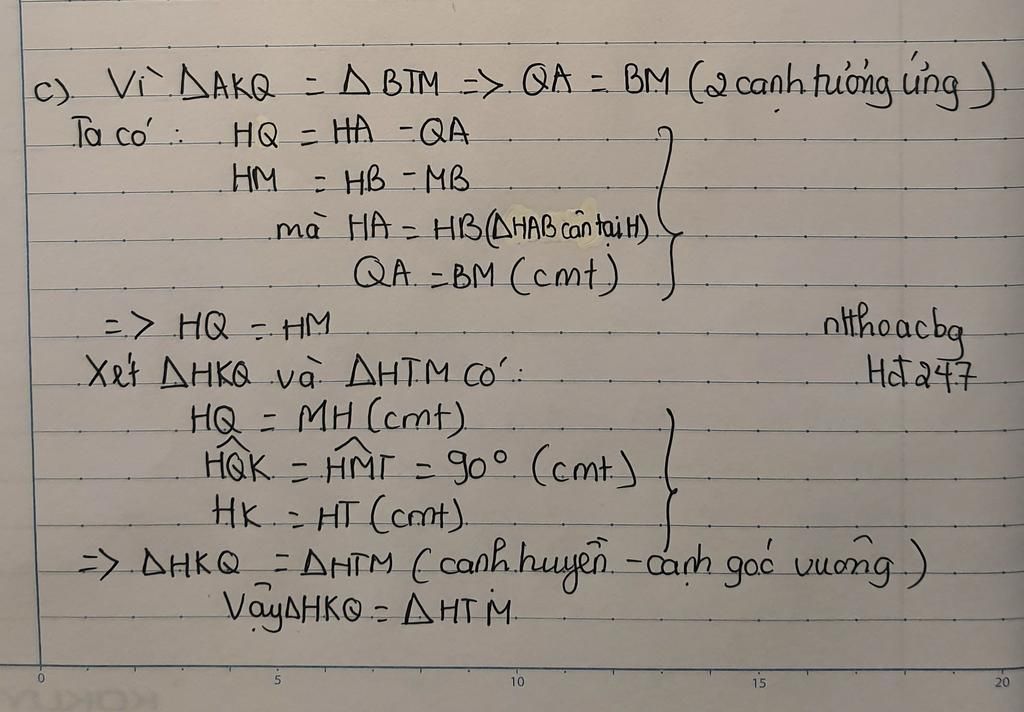 c). Vì ΔAKQ = ΔBTM => QA = BM (2 cạnh tương ứng)
Ta có : HQ = HA - QA
HM = HB - MB
mà HA = HB (ΔHAB cân tại H)
QA = BM (cmt)
=> HQ = HM
nHhoacbg
Hđ247
Xét ΔHKQ và ΔHTM có :
HQ = MH (cmt)
HQK̂ = HMT̂ = 90° (cmt)
HK = HT (cmt)
=> ΔHKQ = ΔHTM (cạnh huyền - cạnh góc vuông)
Vậy ΔHKQ = ΔHTM.
0 5 10 15 20